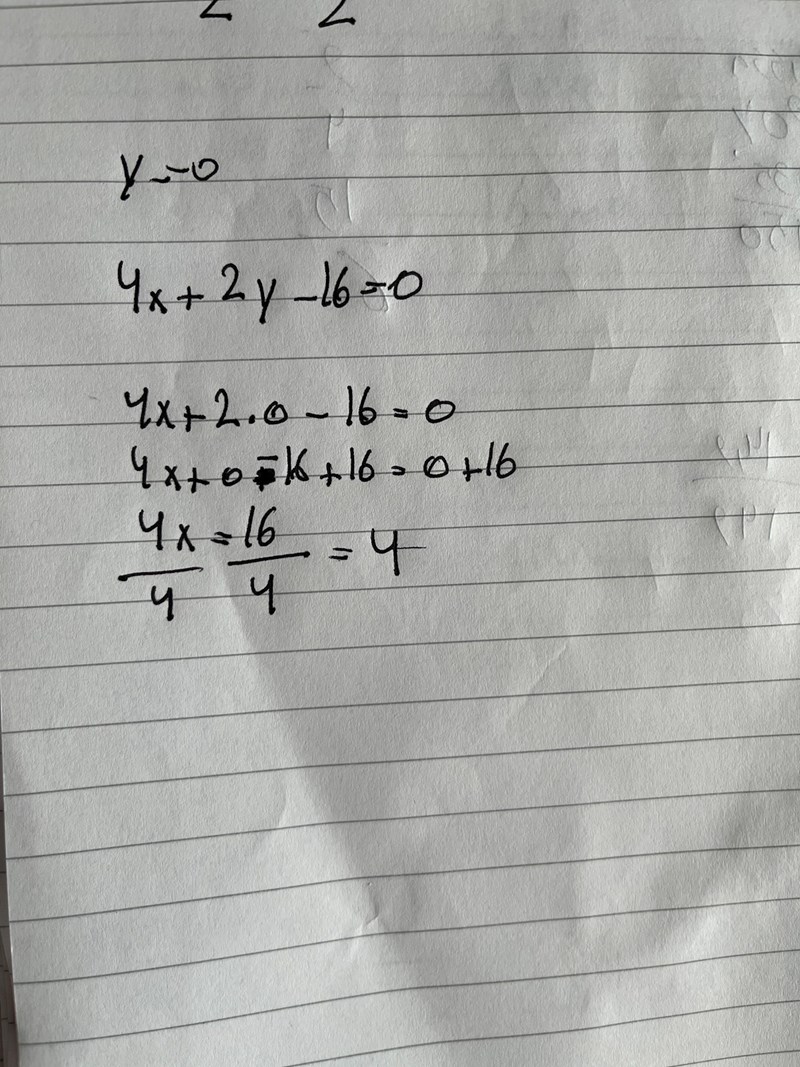 2 2
y=0
4x+2y-16=0
4x+2.0-16=0
4x+0-16+16=0+16
4x/4=16/4=4